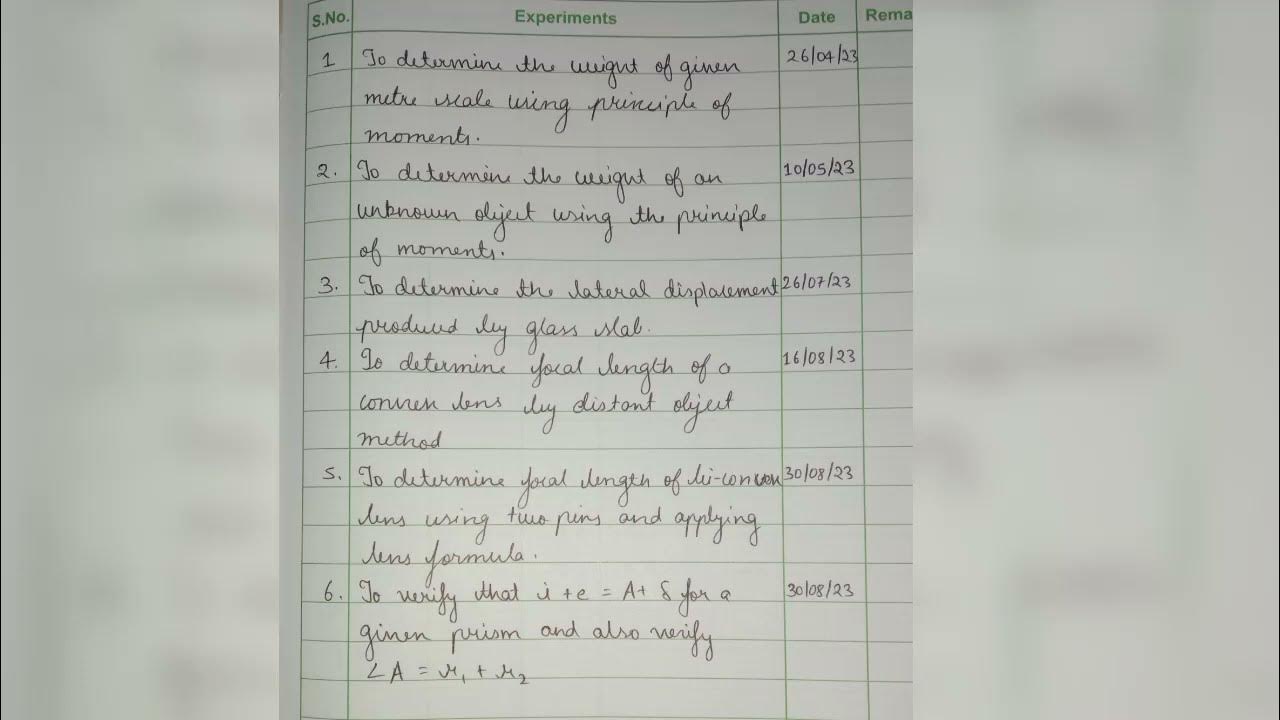 S.No. Experiments Date Rema
1 To determine the weight of given 26/04/23
metre scale using principle of
moments.
2. To determine the weight of an 10/05/23
unknown object using the principle
of moments.
3. To determine the lateral displacement 26/07/23
produced by glass slab.
4. To determine focal length of a 16/08/23
convex lens by distant object
method
5. To determine focal length of bi-convex 30/08/23
lens using two pins and applying
lens formula.
6. To verify that i + e = A + δ for a 30/08/23
given prism and also verify
∠A = r₁ + r₂